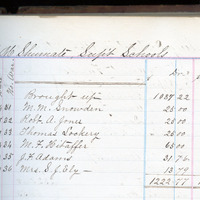 Shumate Supt Schools
$ Dr.
Brought up 1037 22
31 M. M. Snowden 25 00
32 Robt A. Jones 25 00
33 Thomas Lockery 25 00
34 65 00
35 J. F. Adams 31 76
36 Mrs. S. J. Ely 13 79
1222 77